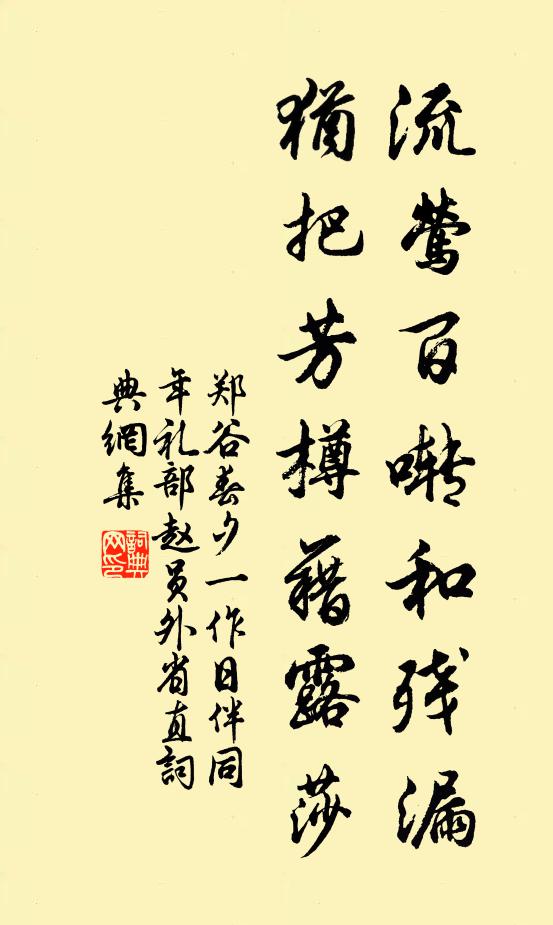 流莺百啭和残漏
犹把芳樽藉露莎
郑谷春夕一作日伴同
年礼部赵员外省直詞
典網集
詞典网印